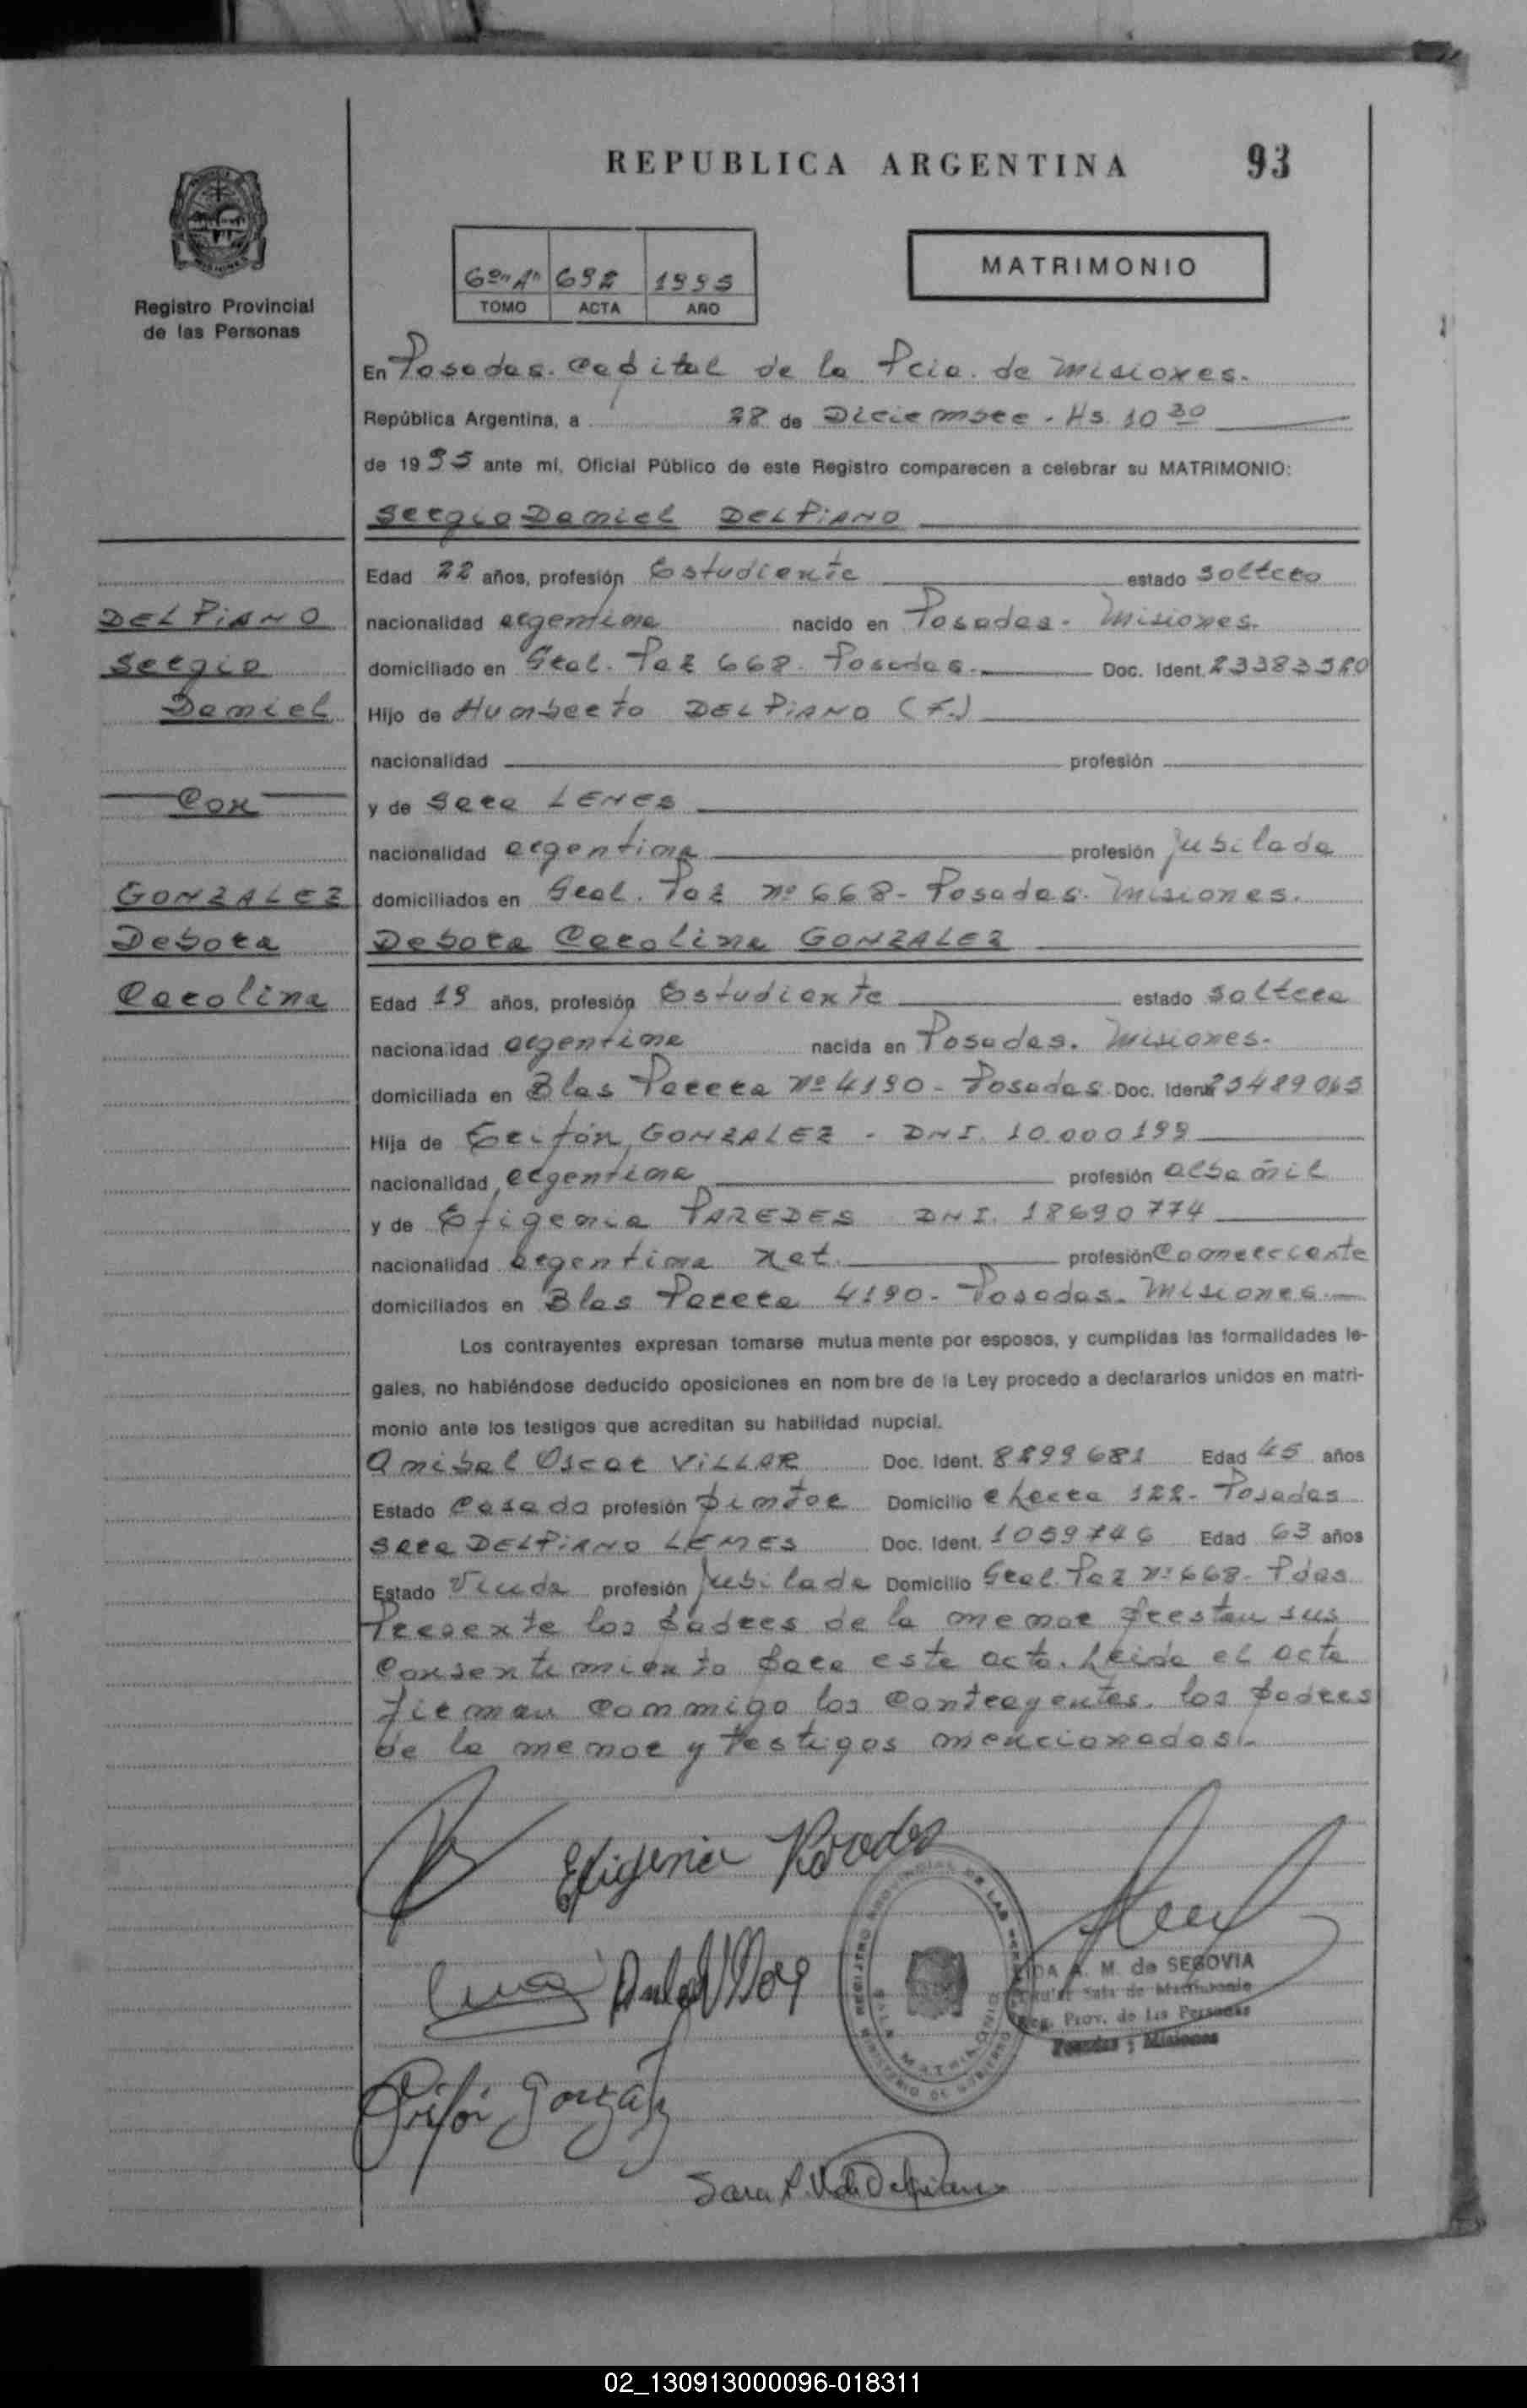 REPUBLICA ARGENTINA 93
Registro Provincial
de las Personas
6º "A" 692 1995
TOMO ACTA AÑO
MATRIMONIO
En Posadas. Capital de la Pcia. de Misiones.
República Argentina, a 28 de Diciembre. Hs. 10 30
de 1995 ante mí, Oficial Público de este Registro comparecen a celebrar su MATRIMONIO:
Sergio Daniel DELPIANO
Edad 22 años, profesión Estudiante estado soltero
DELPIANO
nacionalidad argentina nacido en Posadas - Misiones.
Sergio
domiciliado en Gral. Paz 668. Posadas. Doc. Ident. 23383520
Daniel
Hijo de Humberto DELPIANO (F.)
nacionalidad profesión
Con
y de Sara LEMES
nacionalidad argentina profesión jubilada
GONZALEZ
domiciliados en Gral. Paz nº 668 - Posadas. Misiones.
Debora
Debora Carolina GONZALEZ
Carolina
Edad 19 años, profesión Estudiante estado soltera
nacionalidad argentina nacida en Posadas. Misiones.
domiciliada en Blas Parera Nº 4190 - Posadas Doc. Ident. 25489065
Hija de Grifón GONZALEZ - DNI. 10.000199
nacionalidad argentina profesión albañil
y de Efigenia PAREDES DNI. 18690774
nacionalidad argentina nat. profesión Comerciante
domiciliados en Blas Parera 4190 - Posadas. Misiones.
Los contrayentes expresan tomarse mutua mente por esposos, y cumplidas las formalidades le-
gales, no habiéndose deducido oposiciones en nom bre de la Ley procedo a declararlos unidos en matri-
monio ante los testigos que acreditan su habilidad nupcial.
Anibal Oscar VILLAR Doc. Ident. 8299681 Edad 45 años
Estado Casado profesión pintor Domicilio 122 - Posadas
Sara DELPIANO LEMES Doc. Ident. 1059746 Edad 63 años
Estado Viuda profesión jubilada Domicilio Gral. Paz Nº 668 - Pdas
Presente los padres de la menor prestan sus
Consentimiento para este acto. Leida el acta
firman conmigo los contrayentes. los padres
de la menor y testigos mencionados.
Efigenia Paredes
A. M. de SEGOVIA
Sala de Matrimonio
Reg. Prov. de las Personas
Posadas : Misiones
Grifón González
Sara L. Vda De Delpiano
02_130913000096-018311